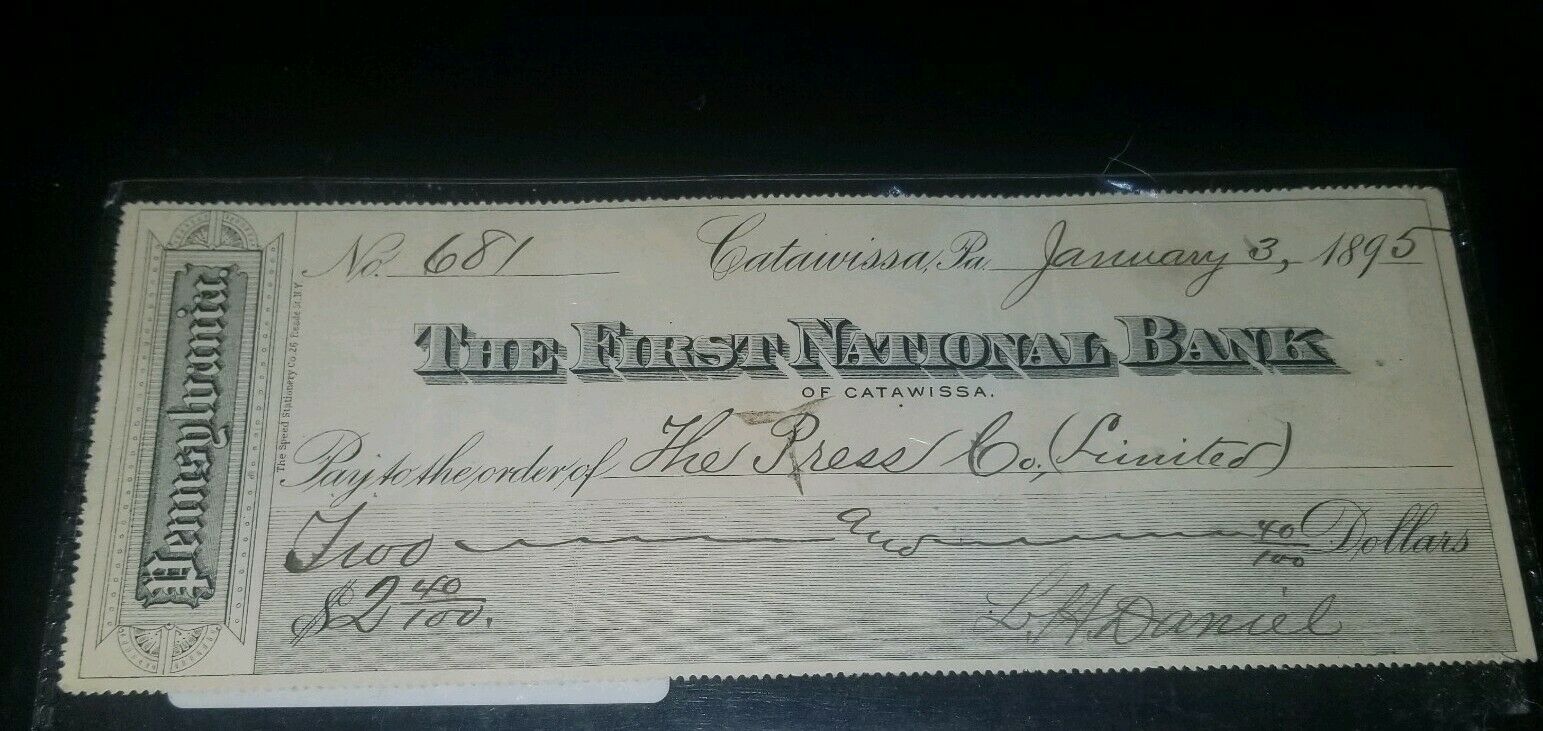 Pennsylvania.
The Speed Stationery Co. 26 Reade St. N.Y.
No. 681 Catawissa, Pa. January 3, 1895
THE FIRST NATIONAL BANK
OF CATAWISSA.
Pay to the order of The Press Co., (Limited)
Two and 40/100 Dollars
$2 40/100.
L. H. Daniel